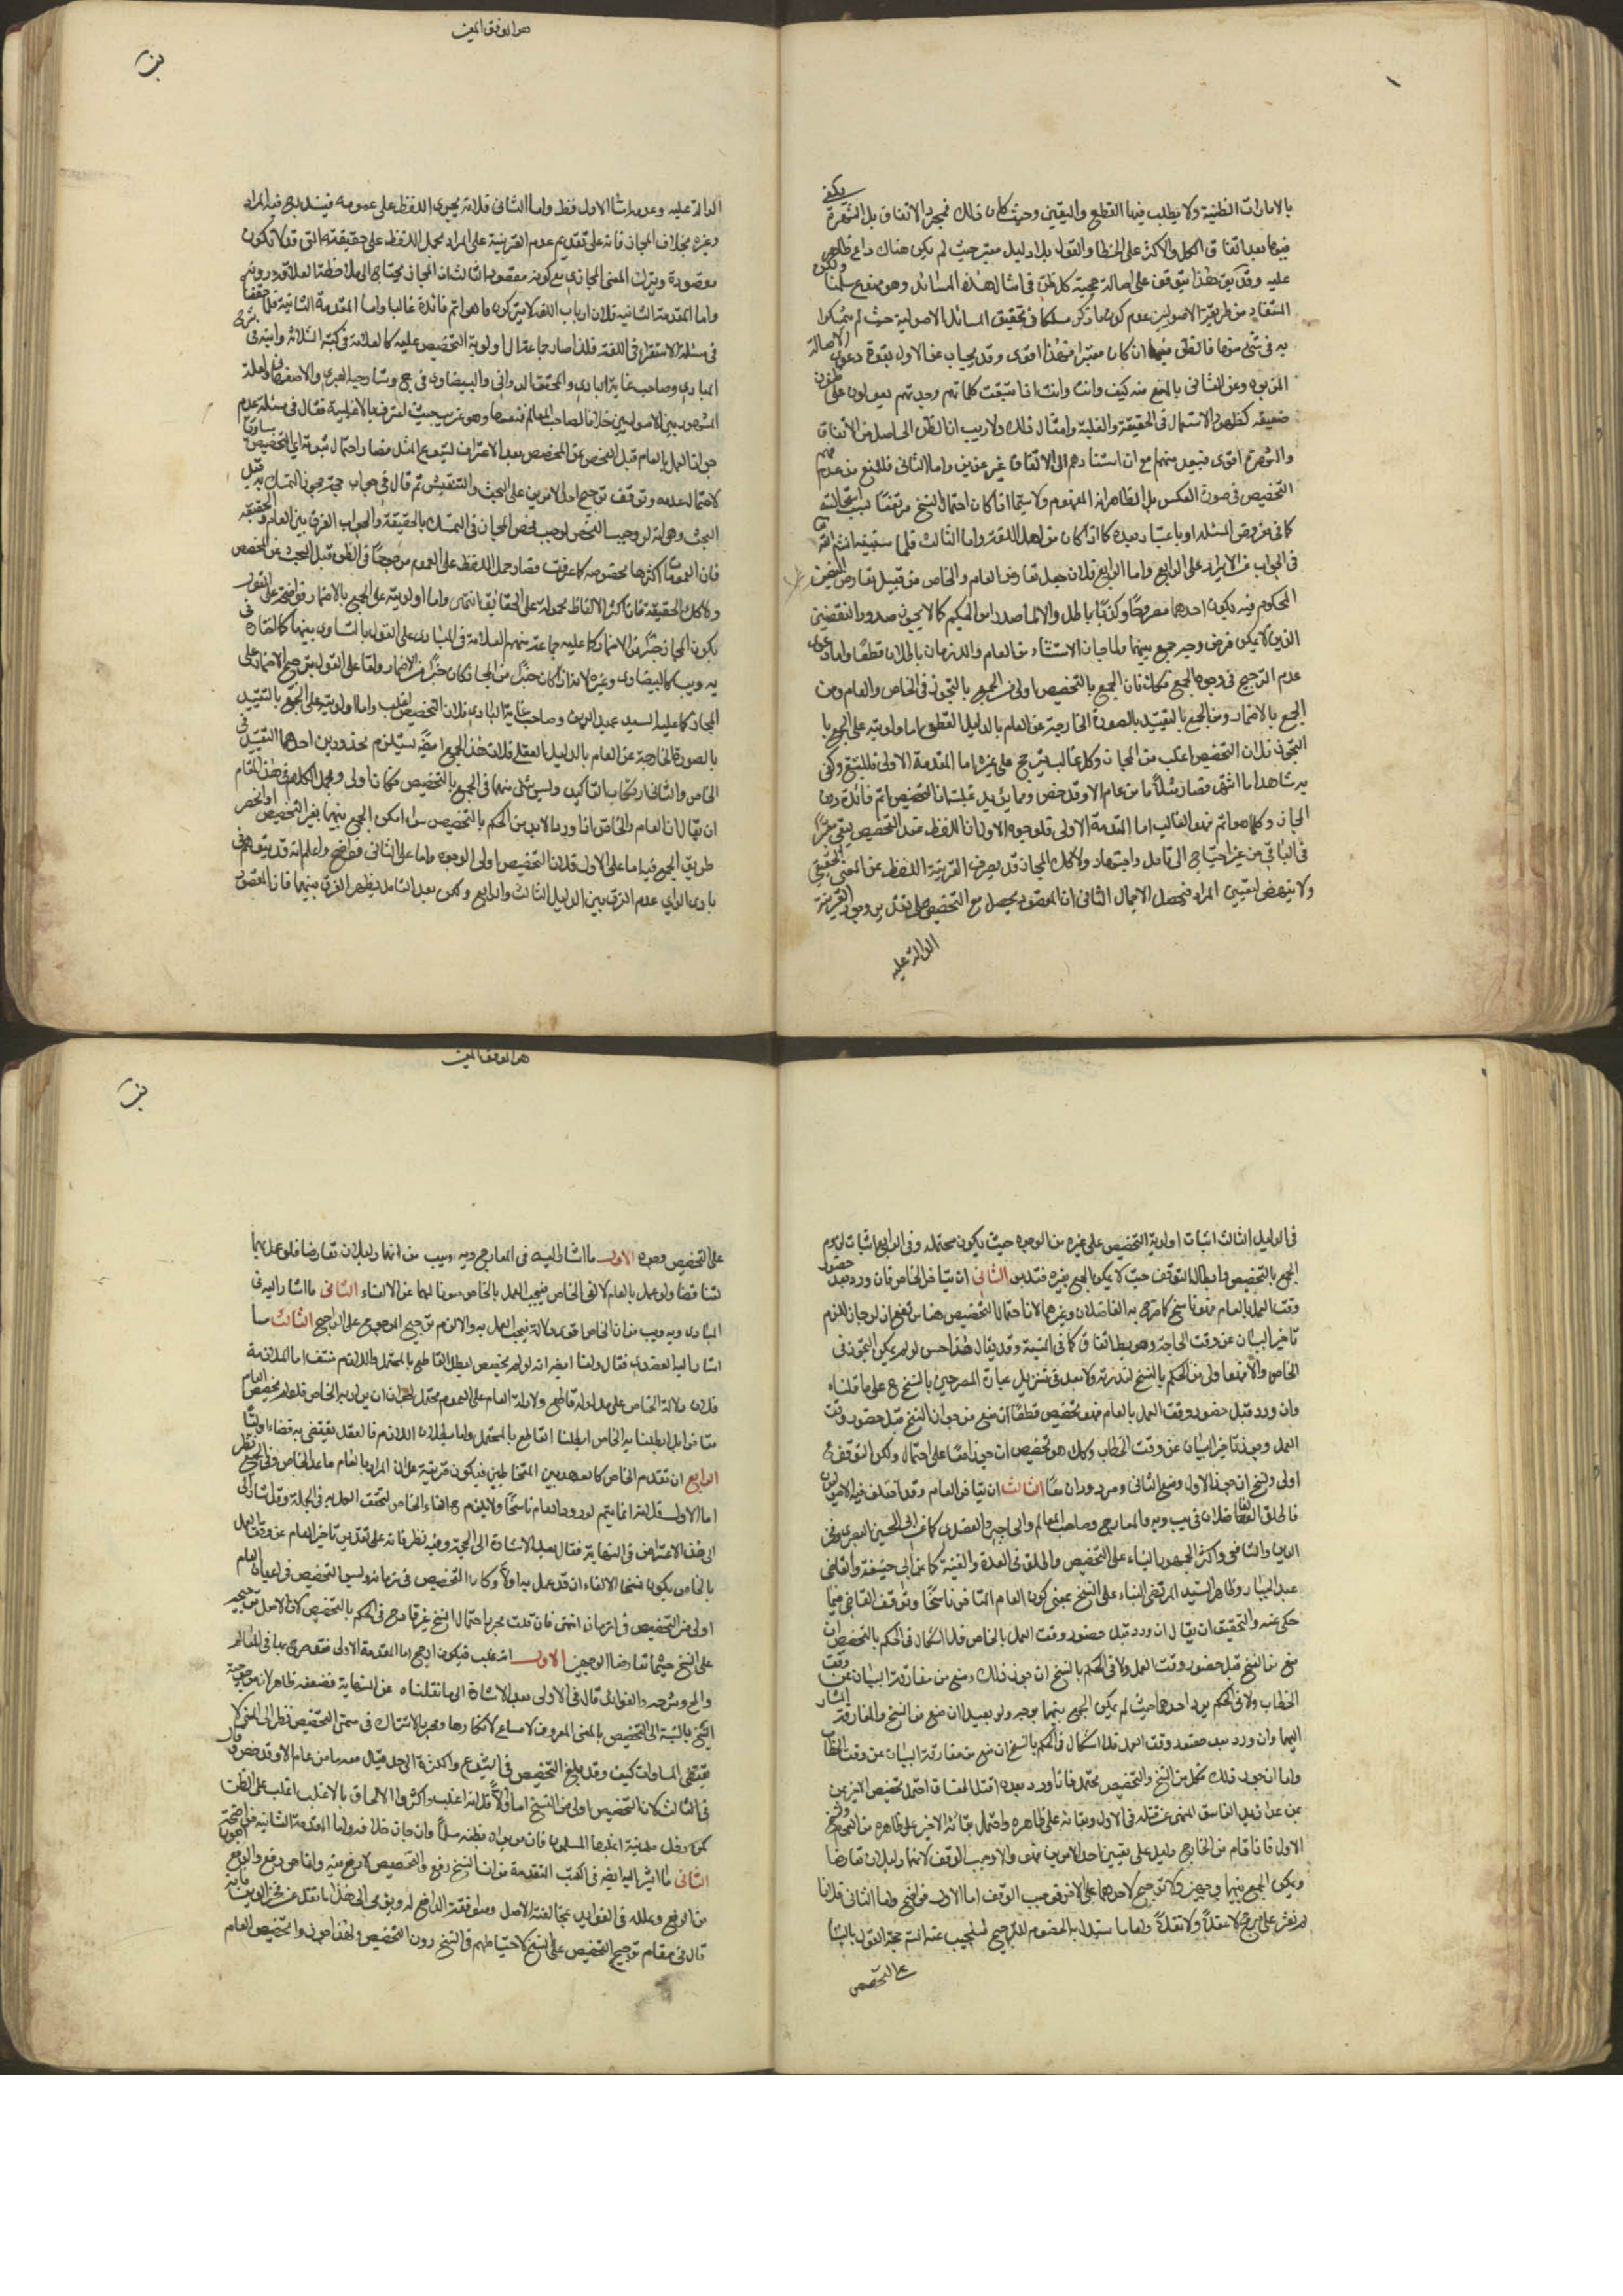 بالامارات الظنية ولا يطلب فيها القطع واليقين وحيث كان ذلك فمجرد الاتفاق بل الشهرة يكفي
فيها بعد اتفاق الكل والاكثر على الخطا والقول بلا دليل معتبر حيث لم يكن هناك داع ظاهر
عليه وقد يتوقف على اصالة حجية كل ظن في امثال هذه المسائل وهو ممنوع سلمنا ولكن
المستفاد من طريقة الاصوليين عدم كون ما ذكر مسلكا في تحقيق المسائل الاصولية حيث لم يتمسكوا
به في شئ منها فالظن منها ان كان معتبرا فهذا اقوى وقد يجاب عن الاول بقوة دعوى الاصالة
وعن الثاني بالمنع منه كيف وانت اذا تتبعت كلماتهم وجدتهم يعولون على ظنون
ضعيفه كظهور الاستعمال في الحقيقة والغلبة وامثال ذلك ولا ريب ان الظن الحاصل من الاتفاق
والشهرة اقوى فتبعد منهم مع ان استنادهم الى الاتفاق غير عزيز واما الثاني فللمنع من عدم فهم
التخصيص في صورة العكس بل الظاهر انه المفهوم ولا سيما اذا كان احتمال النسخ مرتفعا بسبب استحالته
كما في مفروض المسئلة او باعتبار بعده كما اذا كان من اهل اللغة واما الثالث فلما ستنبه انشاء الله
في الجواب عن الايراد على الرابع واما الرابع فلان جعل تعارض العام والخاص من قبيل تعارض النقيضين
المحكوم فيه بكون احدهما مطروحا وكذبا باطل والا لما صدر من الحكيم كما لا يجوز صدور النقيضين
الذين لا يمكن فرض وجه جمع بينهما ولما جاز الاستثناء من العام واللازمان باطلان قطعا واما دعوى
عدم الترجيح في وجوه الجمع فكك فان الجمع بالتخصيص اولى من الجمع بالتجوز في الخاص والعام ومن
الجمع بالاضمار ومن الجمع بالتقييد بالصورة الخارجة عن العام بالدليل القطعي اما اولويته على الجمع با
التجوز فلان التخصيص اغلب من المجاز وكل غالب يترجح على غيره اما المقدمة الاولى فللتتبع وكفى
به شاهدا ما اشتهر فصار مثلا ما من عام الا وقد خص ومما يؤيد غلبته ان التخصيص اتم فائدة من
المجاز وكلما هو اتم فهو الغالب اما المقدمة الاولى فلوجوه الاول ان اللفظ عند التخصيص يبقى معتبرا
في الباقي من غير احتياج الى تامل واجتهاد ولا كك المجاز قد يصرف القرينة اللفظ عن المعنى الحقيقي
ولا ينهض لتعيين المراد فيحصل الاجمال الثاني ان المقصود يحصل مع التخصيص على تقديرين وجود القرينة
الدالة عليه
هو الموفق المعين
الدالة عليه وعدمها اما الاول فقط واما الثاني فلانه يجري اللفظ على عمومه فيندرج فيه المراد
وغيره بخلاف المجاز فانه على تقديم عدم القرينة على المراد يحمل اللفظ على حقيقته التي قد لا تكون
مقصودة ويترك المعنى المجازي مع كونه مقصودا الثالث ان المجاز يحتاج الى ملاحظة العلاقة دونه
واما المقدمة الثانية فلان ارباب اللغة لا يتركون ما هو اتم فائدة غالبا واما المقدمة الثانية فلما حققنا
في مسئلة الاستقراء في اللغة فلذا صار جماعة الى اولوية التخصيص عليه كالعلامة في كتبه الثلاثة وابنه في شرح
المبادي وصاحب غاية البادي والمحقق الدواني والبيضاوي في ج وشارحيه العبري والاصفهاني ولعله
المشهور بين الاصوليين خلافا لصاحب المعالم فمنعها وهو غريب حيث اعترف بالاغلبية فقال في مسئلة عدم
جواز العمل بالعام قبل الفحص عن المخصص بعد الاعتراف لشيوع المثل فصار احتمال ثبوته اي التخصيص مساويا
لاحتمال عدمه وتوقف ترجيح احد الامرين على البحث والتفتيش ثم قال في جواب حجة مجوز التمسك به قبل
البحث وهي انه لو وجب الفحص لوجب فحص المجاز في التمسك بالحقيقة والجواب الفرق بين العام والحقيقة
فان العمومات اكثرها مخصوصه كما عرفت فصار حمل اللفظ على العموم مرجوحا في الظن قبل البحث عن المخصص
ولا كك الحقيقة فان اكثر الالفاظ محمولة على الحقايق انتهى واما اولويته على الجمع بالاضمار فواضحة على القول
بكون المجاز خيرا من الاضمار كما عليه جماعة منهم العلامة في المبادي على القول بالتساوي بينهما كما اختاره في
يه ويب والبيضاوي وغيره لانه اذا كان خيرا من المجاز كان خيرا من الاضمار واما على القول بترجيح الاضمار على
المجاز كما عليه السيد عميد الدين وصاحب غاية البادي فلان التخصيص اغلب واما اولويته على الجمع بالتقييد
بالصورة الخارجة عن العام بالدليل العقلي فلان هذا الجمع ايضا يستلزم محذورين احدهما التقييد في
الخاص والثاني ارتكاب التاكيد وليس شئ منهما في الجمع بالتخصيص فكانا اولى ومجمل الكلام في هذا المقام
ان يقال ان العام والخاص اذا وردا لابد من الحكم بالتخصيص سواء امكن الجمع بينهما بغير التخصيص او انحصر
طريق الجمع فيه اما على الاول فلان التخصيص اولى الوجوه واما على الثاني فواضح واعلم انه قد يتوهم في
بادى الراي عدم الفرق بين الدليل الثالث والرابع ولكن بعد التامل يظهر الفرق بينهما فان المقصود
في الدليل الثالث اثبات اولوية التخصيص على غيره من الوجوه حيث يكون محتمله وفي الرابع اثبات لزوم
الجمع بالتخصيص وابطال التوقف حيث لا يمكن الجمع بغيره فتدبر الثاني ان يتاخر الخاص فان ورد بعد حضور
وقت العمل بالعام فهو ناسخ كما صرح به الفاضلان وغيرهما لان احتمال التخصيص هنا مرتفع اذ لو جاز للزم
تاخير البيان عن وقت الحاجة وهو بط اتفاقا كما في المنية وقد يقال هذا حسن لو لم يكن التجوز في
الخاص والا فهو اولى من الحكم بالنسخ لندرته ولا بعد في تنزيل عبارة المصرحين بالنسخ ح على ما قلناه
وان ورد قبل حضور وقت العمل بالعام فهو تخصيص قطعا ان منع من جواز النسخ قبل حضور وقت
العمل وجوز تاخير البيان عن وقت الخطاب وكك هو تخصيص ان جوز امعا على احتمال ولكن التوقف ح
اولى ونسخ ان جوز الاول ومنع الثاني ومردود ان معا الثالث ان يتاخر العام وقد اختلف فيه الاصوليون
فاطلق الفاضلان في يب ويه والمعارج وصاحب المعالم والحاجبي والعضدي كما عن ابي الحسين البصري وفخر
الدين والشافعي واكثر الجمهور البناء على التخصيص واطلق في العدة والغنية كما عن ابي حنيفة والقاضي
عبد الجبار وظاهر السيد المرتضى البناء على النسخ بمعنى كون العام المتاخر ناسخا وتوقف القاضي فيما
حكي عنه والتحقيق ان يقال ان ورد قبل حضور وقت العمل بالخاص فلا اشكال في الحكم بالتخصيص ان
منع من النسخ قبل حضور وقت العمل ولا في الحكم بالنسخ ان جوز ذلك ومنع من مفارقة البيان عن وقت
الخطاب ولا في الحكم برد احدهما حيث لم يمكن الجمع بينهما بوجه ولو بعيد ان منع من النسخ والمفارقة المشار
اليهما وان ورد بعد حضور وقت العمل فلا اشكال في الحكم بالنسخ ان منع من مفارقة البيان عن وقت الخطاب
واما ان جوز ذلك فكل من النسخ والتخصيص محتمل فاذا ورد بعده اقتل الفساق احتمل تخصيص الاخيرين
بمن عدا زيد الفاسق المنهى عن قتله في الاول وبقائه على ظاهره واحتمل بقائه الاخير على ظاهره من العموم ونسخ
الاول فاذا قام من الخارج دليل على تعيين احد الامرين فهو والا وجب الوقف لانهما دليلان تعارضا
ويمكن الجمع بينهما بوجهين ولا ترجيح لاحدهما على الاخر فوجب الوقف اما الاول فواضح واما الثاني فلانا
لم نعثر على مرجح لا عقلا ولا نقلا واما ما يستدل به الخصوم للترجيح فسنجيب عنه انشا حجة القول بالبناء
على التخصيص
هو الموفق المعين
على التخصيص وجوه الاول ما اشار اليه في المعارج ويه ويب من انهما دليلان تعارضا فلو عمل بهما
لتناقضا ولو عمل بالعام لالغي الخاص فيجب العمل بالخاص صونا لهما عن الالغاء الثاني ما اشار اليه في
المبادي ويه ويب من ان الخاص اقوى دلالة فيجب العمل به والا لزم ترجيح المرجوح على الراجح الثالث ما
اشار اليه العضدي فقال ولنا ايضا انه لو لم يخصص لبطل القاطع بالمحتمل واللازم منتف اما الملازمة
فلان دلالة الخاص على مدلوله قاطع ودلالة العام على العموم محتمل لجواز ان يراد به الخاص فلو لم يخصص العام
متاخرا بل ابطلنا به الخاص ابطلنا القاطع بالمحتمل واما بطلان اللازم فالعقل يقتضي به قضاء اوليا
الرابع ان تقدم الخاص كالمعهود بين المتخاطبين فيكون قرينة على ان المراد بالعام ما عدا الخاص وفي الجميع نظر
اما الاول فلانه انما يتم لو ورد العام ناسخا ولا يلزم ح الغاء الخاص لتحقق العمل به في الجملة وقد اشار في
الى هذا الاعتراض في النهاية فقال بعد الاشارة الى الحجة وفيه نظر فانه على تقدير تاخير العام عن وقت العمل
بالخاص يكون نسخا لا الغاء اذ قد عمل به اولا وكان التخصيص في زمانه وليس التخصيص في اعيان العام
اولى من التخصيص في ازمان انتهى فان قلت مجرد احتمال النسخ غير قادح في الحكم بالتخصيص لان الاصل ترجيحه
على النسخ حيثما تعارضا لوجهين الاول انه غالب فيكون ارجح اما المقدمة الاولى فقد صرح بها في المعالم
وشرحه والفوائد قال في الاولى بعد الاشارة الى ما نقلناه عن النهاية فضعفه ظاهر لان مرجوحية
النسخ بالنسبة الى التخصيص بالمعنى المعروف لا مساغ لانكارها ومجرد الاشتراك في مسمى التخصيص نظرا الى المعنى لا
يقتضي المساوات كيف وقد بلغ التخصيص في الشيوع والكثرة الى حد قيل معه ما من عام الا وقد خص
في الثالث لان التخصيص اولى من النسخ اما اولا فلانه اغلب واكثر والالحاق بالاغلب اغلب على الظن
كمن دخل مدينة اغلبها المسلمون فان من يراه يظنه مسلما وان جاز خلافه واما المقدمة الثانية فواضحة
الثاني ما اشار اليه ايضا في الكتب المتقدمة من ان النسخ رفع والتخصيص لا رفع فيه وانما هو دفع والدفع اهون
من الرفع وعلله في الفوائد بمخالفته الاصل وموافقة الدافع له ويومى الى هذا ما نقل عن فخر الدين
قال في مقام ترجيح التخصيص على النسخ لاحتياطهم في النسخ دون التخصيص ولهذا جوزوا تخصيص العام